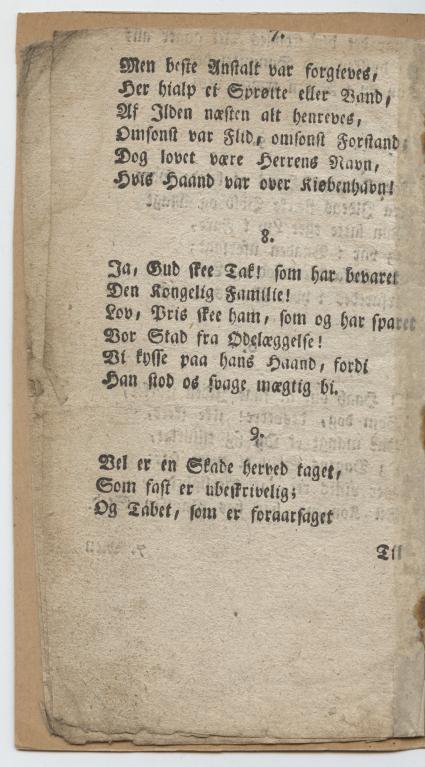 7.
Men beste Anstalt var forgieves,
Her hialp ei Sprøite eller Vand,
Af Ilden næsten alt henreves,
Omsonst var Flid, omsonst Forstand:
Dog lovet være Herrens Navn,
Hvis Haand var over Kiøbenhavn!
8.
Ja, Gud skee Tak! som har bevaret
Den Kongelig Familie!
Lov, Pris skee ham, som og har sparet
Vor Stad fra Ødelæggelse!
Vi kysse paa hans Haand, fordi
Han stod os svage mægtig bi.
9.
Vel er en Skade herved taget,
Som fast er ubeskrivelig;
Og Tabet, som er foraarsaget
Til